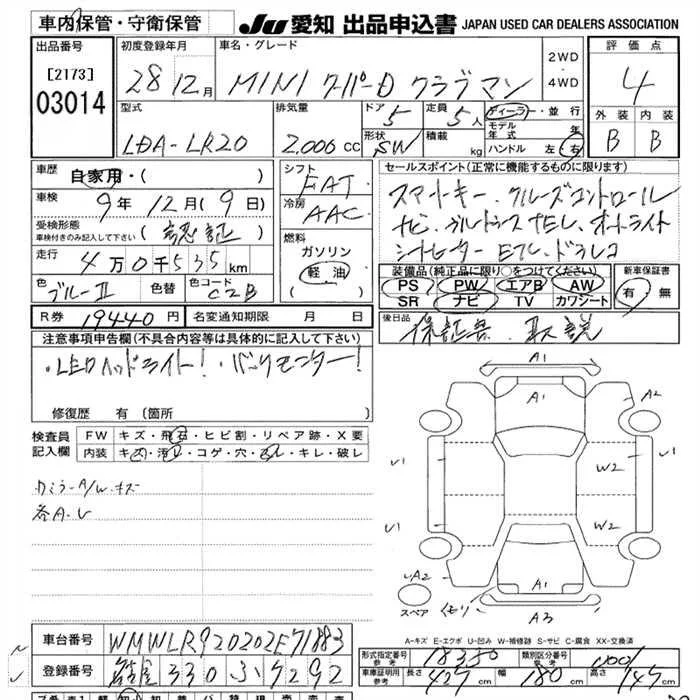 車内保管・守衛保管
JU 愛知 出品申込書 JAPAN USED CAR DEALERS ASSOCIATION
出品番号
[2173]
03014
初度登録年月
28 12月
車名・グレード
MINI クーパーD クラブマン
2WD
・
4WD
評価点
4
外装 内装
B B
型式
LDA-LR20
排気量
2,000 cc
ドア
5
形状
SW
定員
5人
積載
kg
ディーラー・並行
モデル年式 年
ハンドル 左・右
車歴
自家用・( )
車検
9年 12月(9日)
受検形態
車検付きのみ記入して下さい
(認証)
走行
4万0千535km
色
ブルーII
色替
色コード
C2B
シフト
FAT
冷房
AAC
燃料
ガソリン
軽油
セールスポイント(正常に機能するものに限ります)
スマートキー、クルーズコントロール
ナビ、フルセグTEL、オートライト
シートヒーター ETC、ドラレコ
装備品(純正品に限り○をつけてください)
PS PW エアB AW
SR ナビ TV カワシート
新車保証書
有・無
R券 19440円
名変通知期限 月 日
後日品
保証書、取説
注意事項申告欄(不具合内容等は具体的に記入して下さい)
・LEDヘッドライト! ・バックモニター!
修復歴 有(箇所
検査員
記入欄
FW キズ・飛石・ヒビ割・リペア跡・X要
内装 キズ・汚れ・コゲ・穴・スレ・キレ・破レ
カミラーA/W、キズ
各A、U
A1
A1
A2
U1
U1
W2
W2
U1
U1
A2
スペア
A1
A3
A-キズ E-エクボ U-凹み W-補修跡 S-サビ C-腐食 XX-交換済
車台番号 WMWLR920202E71883
登録番号 名古屋 330 ふ 7292
形式指定番号
参考
18350
類別区分番号
参考
0001
車庫証明用
参考
長さ 427cm 幅 180cm 高さ 147cm